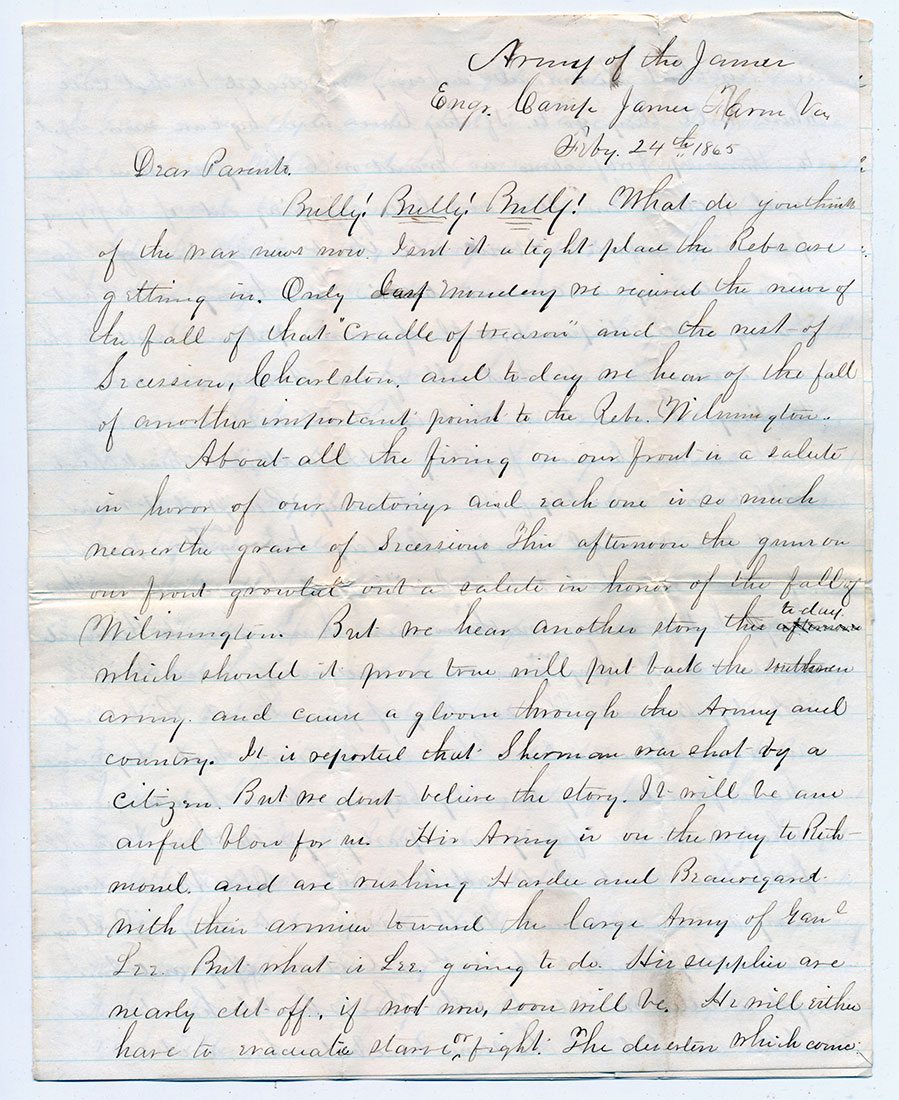 Army of the James
Engr. Camp James Farm Va
Feby. 24th 1865
Dear Parents.
Bully! Bully! Bully! What do you think
of the war news now. Isnt it a tight place the Rebs are
getting in. Only last Monday we received the news of
the fall of that "Cradle of treason" and the nest of
Secession, Charlston. and today we hear of the fall
of another important point to the Rebs. Wilmington.
About all the firing on our front is a salute
in honor of our victorys and each one is so much
nearer the grave of Secession This afternoon the guns on
our front growled out a salute in honor of the fall of
Wilmington. But we hear another story this afternoon today
which should it prove true will put back the southern
army. and cause a gloom through the Army and
country. It is reported that Sherman was shot by a
citizen. But we dont believe the story. It will be an
airful blow for us. His Army is on the way to Rich-
mond. and are rushing Hardee and Beauregard
with their armies toward the large Army of Genl
Lee. But what is Lee. going to do. His supplies are
nearly cut off, if not now, soon will be. He will either
have to evacuate starve or fight. The deserters which come